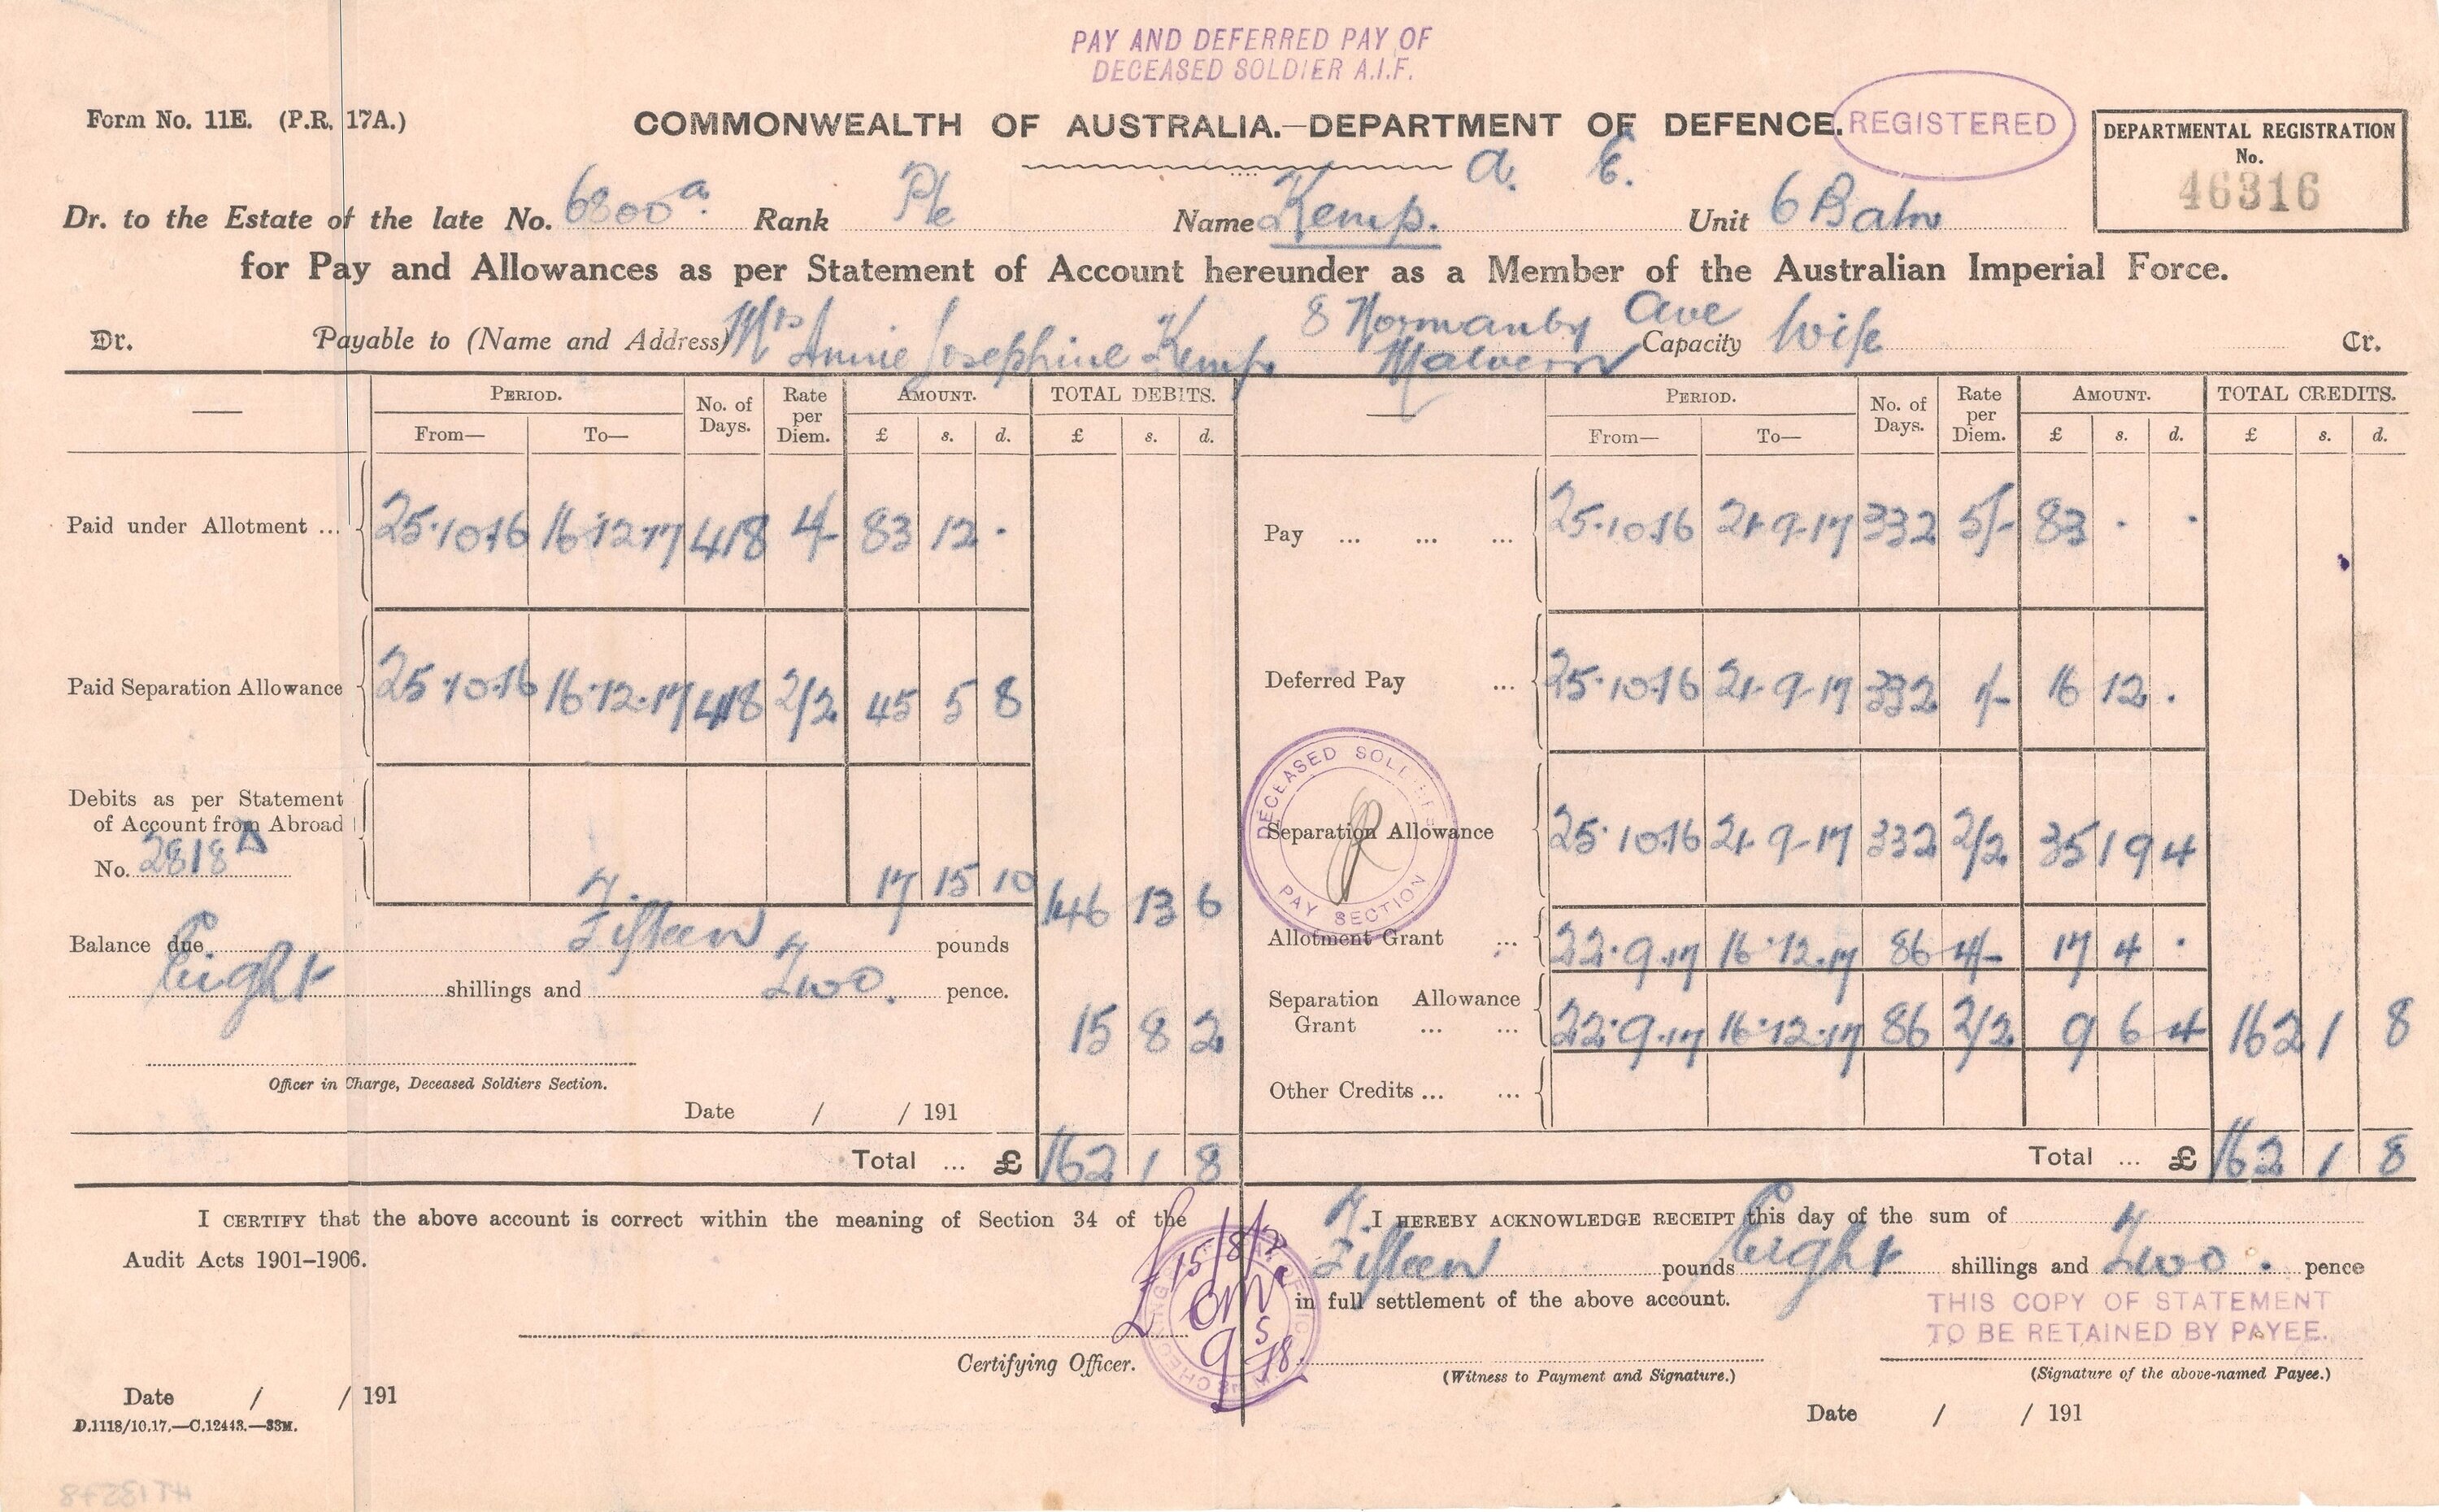 PAY AND DEFERRED PAY OF
DECEASED SOLDIER A.I.F.
Form No. 11E. (P.R. 17A.)
COMMONWEALTH OF AUSTRALIA.—DEPARTMENT OF DEFENCE.
REGISTERED
DEPARTMENTAL REGISTRATION
No.
46316
Dr. to the Estate of the late No. 6800 a. Rank Pte Name Kemp. A. E. Unit 6 Batn
for Pay and Allowances as per Statement of Account hereunder as a Member of the Australian Imperial Force.
Dr. Payable to (Name and Address) Mrs Annie Josephine Kemp 8 Normanby Ave Malvern Capacity Wife Cr.
PERIOD. No. of Days. Rate per Diem. AMOUNT. TOTAL DEBITS.
From— To— £ s. d. £ s. d.
Paid under Allotment ... 25.10.16 16.12.17 418 4/- 83 12 .
Paid Separation Allowance 25.10.16 16.12.17 418 2/2 45 5 8
Debits as per Statement
of Account from Abroad
No. 2818 A 17 15 10 146 13 6
Balance due Fifteen pounds
Eight shillings and Two. pence.
15 8 2
Officer in Charge, Deceased Soldiers Section.
Date / / 191
Total ... £ 162 1 8
PERIOD. No. of Days. Rate per Diem. AMOUNT. TOTAL CREDITS.
From— To— £ s. d. £ s. d.
Pay ... ... ... 25.10.16 21-9-17 332 5/- 83 . .
Deferred Pay ... 25.10.16 21-9-17 332 1/- 16 12 .
DECEASED SOLDIERS
PAY SECTION
Separation Allowance 25.10.16 21-9-17 332 2/2 35 19 4
Allotment Grant ... 22.9.17 16.12.17 86 4/- 17 4 .
Separation Allowance
Grant ... ... 22.9.17 16.12.17 86 2/2 9 6 4 162 1 8
Other Credits ... ...
Total ... £ 162 1 8
I CERTIFY that the above account is correct within the meaning of Section 34 of the
Audit Acts 1901–1906.
£15/8/2
9/5/18.
Certifying Officer.
Date / / 191
D.1118/10.17.—C.12443.—33M.
I HEREBY ACKNOWLEDGE RECEIPT this day of the sum of
Fifteen pounds Eight shillings and Two. pence
in full settlement of the above account.
THIS COPY OF STATEMENT
TO BE RETAINED BY PAYEE.
(Witness to Payment and Signature.)
(Signature of the above-named Payee.)
Date / / 191